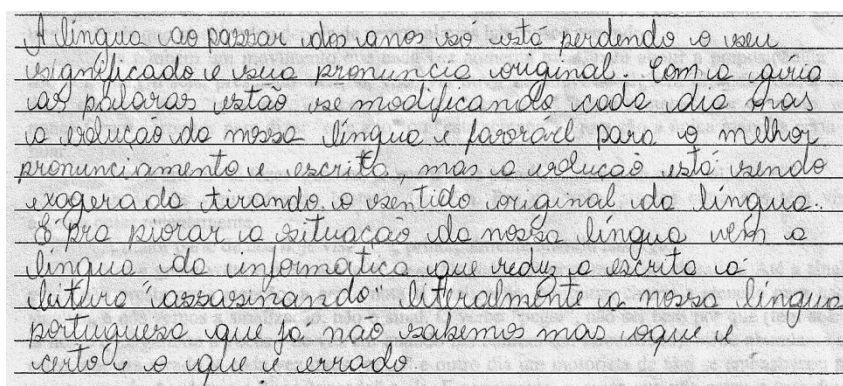 A língua ao passar dos anos só está perdendo o seu
significado e sua pronuncia original. Com a gíria
as palavras estão se modificando cada dia mas
a evolução da nossa língua e favorável para o melhor
pronunciamento e escrita, mas a evolução está sendo
exagerada tirando o sentido original da língua.
E pra piorar a situação da nossa língua vem a
língua da informatica que reduz a escrita a
leitura "assasinando" literalmente a nossa língua
portuguesa que já não sabemos mas oque e
certo e o que e errado